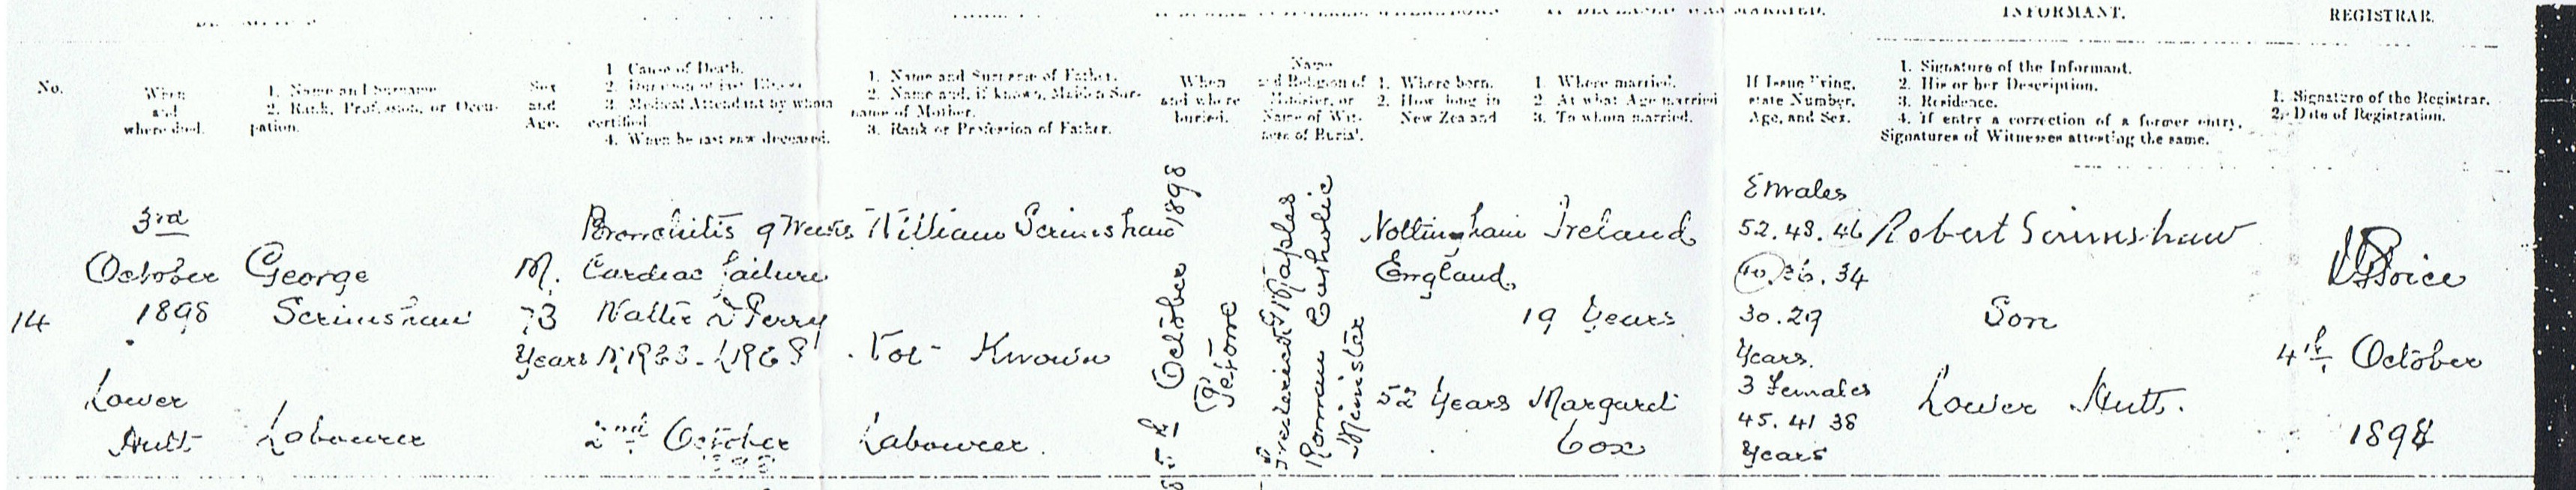 MARRIED.
INFORMANT.
REGISTRAR.
No.
When
and
where died.
1. Name and Surname
2. Rank, Profession, or Occu-
pation.
Sex
and
Age.
1 Cause of Death.
2. Duration of last Illness
3. Medical Attendant by whom
certified
4. When he last saw deceased.
1. Name and Surname of Father.
2. Name and, if known, Maiden Sur-
name of Mother.
3. Rank or Profession of Father.
When
and where
buried.
Name
and Religion of
Minister, or
Name of Wit-
ness of Burial.
1. Where born.
2. How long in
New Zealand
1. Where married.
2. At what Age married
3. To whom married.
If Issue living,
state Number,
Age, and Sex.
1. Signature of the Informant.
2. His or her Description.
3. Residence.
4. If entry a correction of a former entry,
Signatures of Witnesses attesting the same.
1. Signature of the Registrar.
2. Date of Registration.
14
3rd
October
1898
Lower
Hutt
George
Scrimshaw
Labourer
M.
73
Years
Bronchitis 9 Weeks
Cardiac failure
Perry
2nd October
1898
William Scrimshaw
Not Known
Labourer.
5th October 1898
Petone
Maples
Roman Catholic
Minister
Nottingham
England
52 Years
Ireland
19 Years
Margaret
Cox
52. 48. 46
40. 36. 34
30. 29
Years.
3 Females
45. 41 38
Years
Robert Scrimshaw
Son
Lower Hutt.
4th October
1898